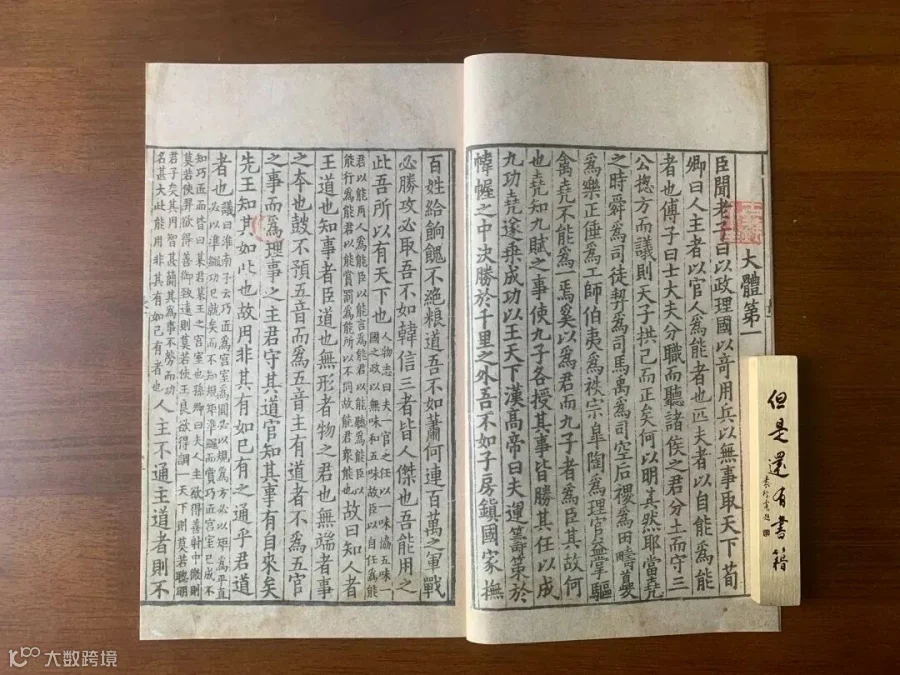 大體第一
臣聞老子曰以政理國以竒用兵以無事取天下荀
卿曰人主者以官人為能者也匹夫者以自能為能
者也傅子曰士大夫分職而聽諸侯之君分土而守三
公揔方而議則天子拱己而正矣何以明其然耶當堯
之時舜為司徒契為司馬禹為司空后稷為田疇夔
為樂正倕為工師伯夷為秩宗皋陶為理官益掌驅
禽堯不能為一焉奚以為君而九子者為臣其故何
也堯知九賦之事使九子各授其事皆勝其任以成
九功堯遂乘成功以王天下漢高帝曰夫運籌策於
幃幄之中決勝於千里之外吾不如子房鎮國家撫
百姓給餉餽不絕粮道吾不如蕭何連百萬之軍戰
必勝攻必取吾不如韓信三者皆人傑也吾能用之
此吾所以有天下也人物志曰夫一官之任以一味協五味一
國之政以無味和五味故臣以自任為能
君以能用人為能臣以能言為能君以能聽為能臣以
能行為能君以能賞罰為能所以不同故能君衆能也故曰知人者
王道也知事者臣道也無形者物之君也無端者事
之本也鼓不預五音而為五音主有道者不為五官
之事而為理事之主君守其道官知其事有自來矣
先王知其如此也故用非其有如己有之通乎君道
者也議曰淮南子云巧匠為宮室為圓必以規為方必以矩為平直
必以準繩功已就矣而不知規矩準繩而賞巧匠宮室已成不
知巧匠而皆曰某君某王之宮室也孫卿曰夫人主欲得善射中微則
莫若使羿欲得善御致遠則莫若使王良欲得調一天下則莫若聰明
君子矣其用智甚簡其為事不勞而功
名甚大此能用非其有如己有者也人主不通主道者則不
但是還有書籍
大数跨境